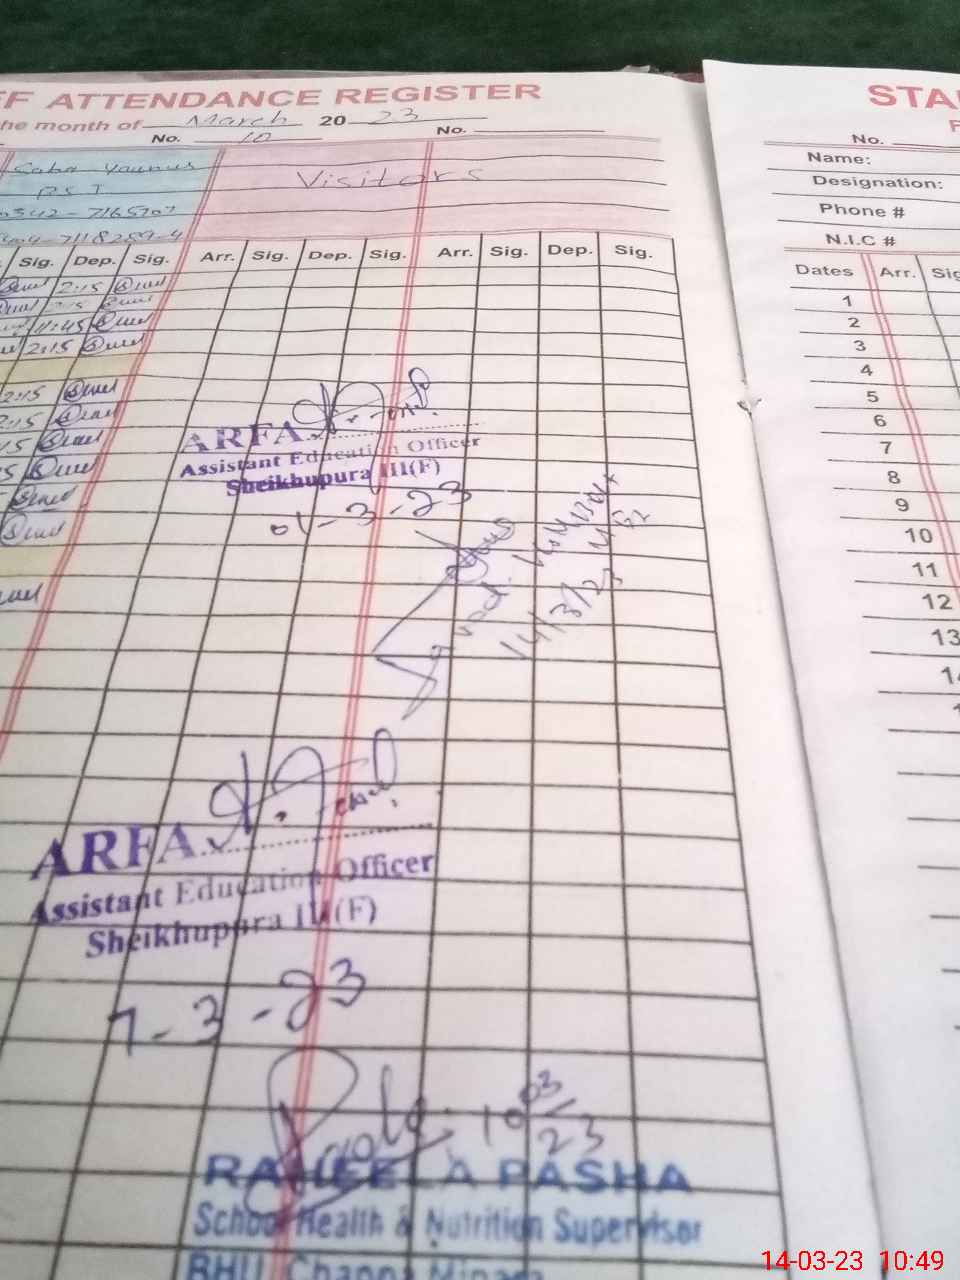 FF ATTENDANCE REGISTER
he month of March 20 23
No. 10 No.
Saba Younus
PST
0342-7165707
404-7118289-4
Visitors
Sig. Dep. Sig. Arr. Sig. Dep. Sig. Arr. Sig. Dep. Sig.
2:15
2:15
11:45
2:15
2:15
2:15
15
5
ARFA
Assistant Education Officer
Sheikhupura III(F)
01-3-23
14/3/23
ARFA
Assistant Education Officer
Sheikhupura III(F)
7-3-23
10 03/23
RAHEELA PASHA
School Health & Nutrition Supervisor
BHU
STA
No.
Name:
Designation:
Phone #
N.I.C #
Dates Arr. Sig
1
2
3
4
5
6
7
8
9
10
11
12
13
14-03-23 10:49